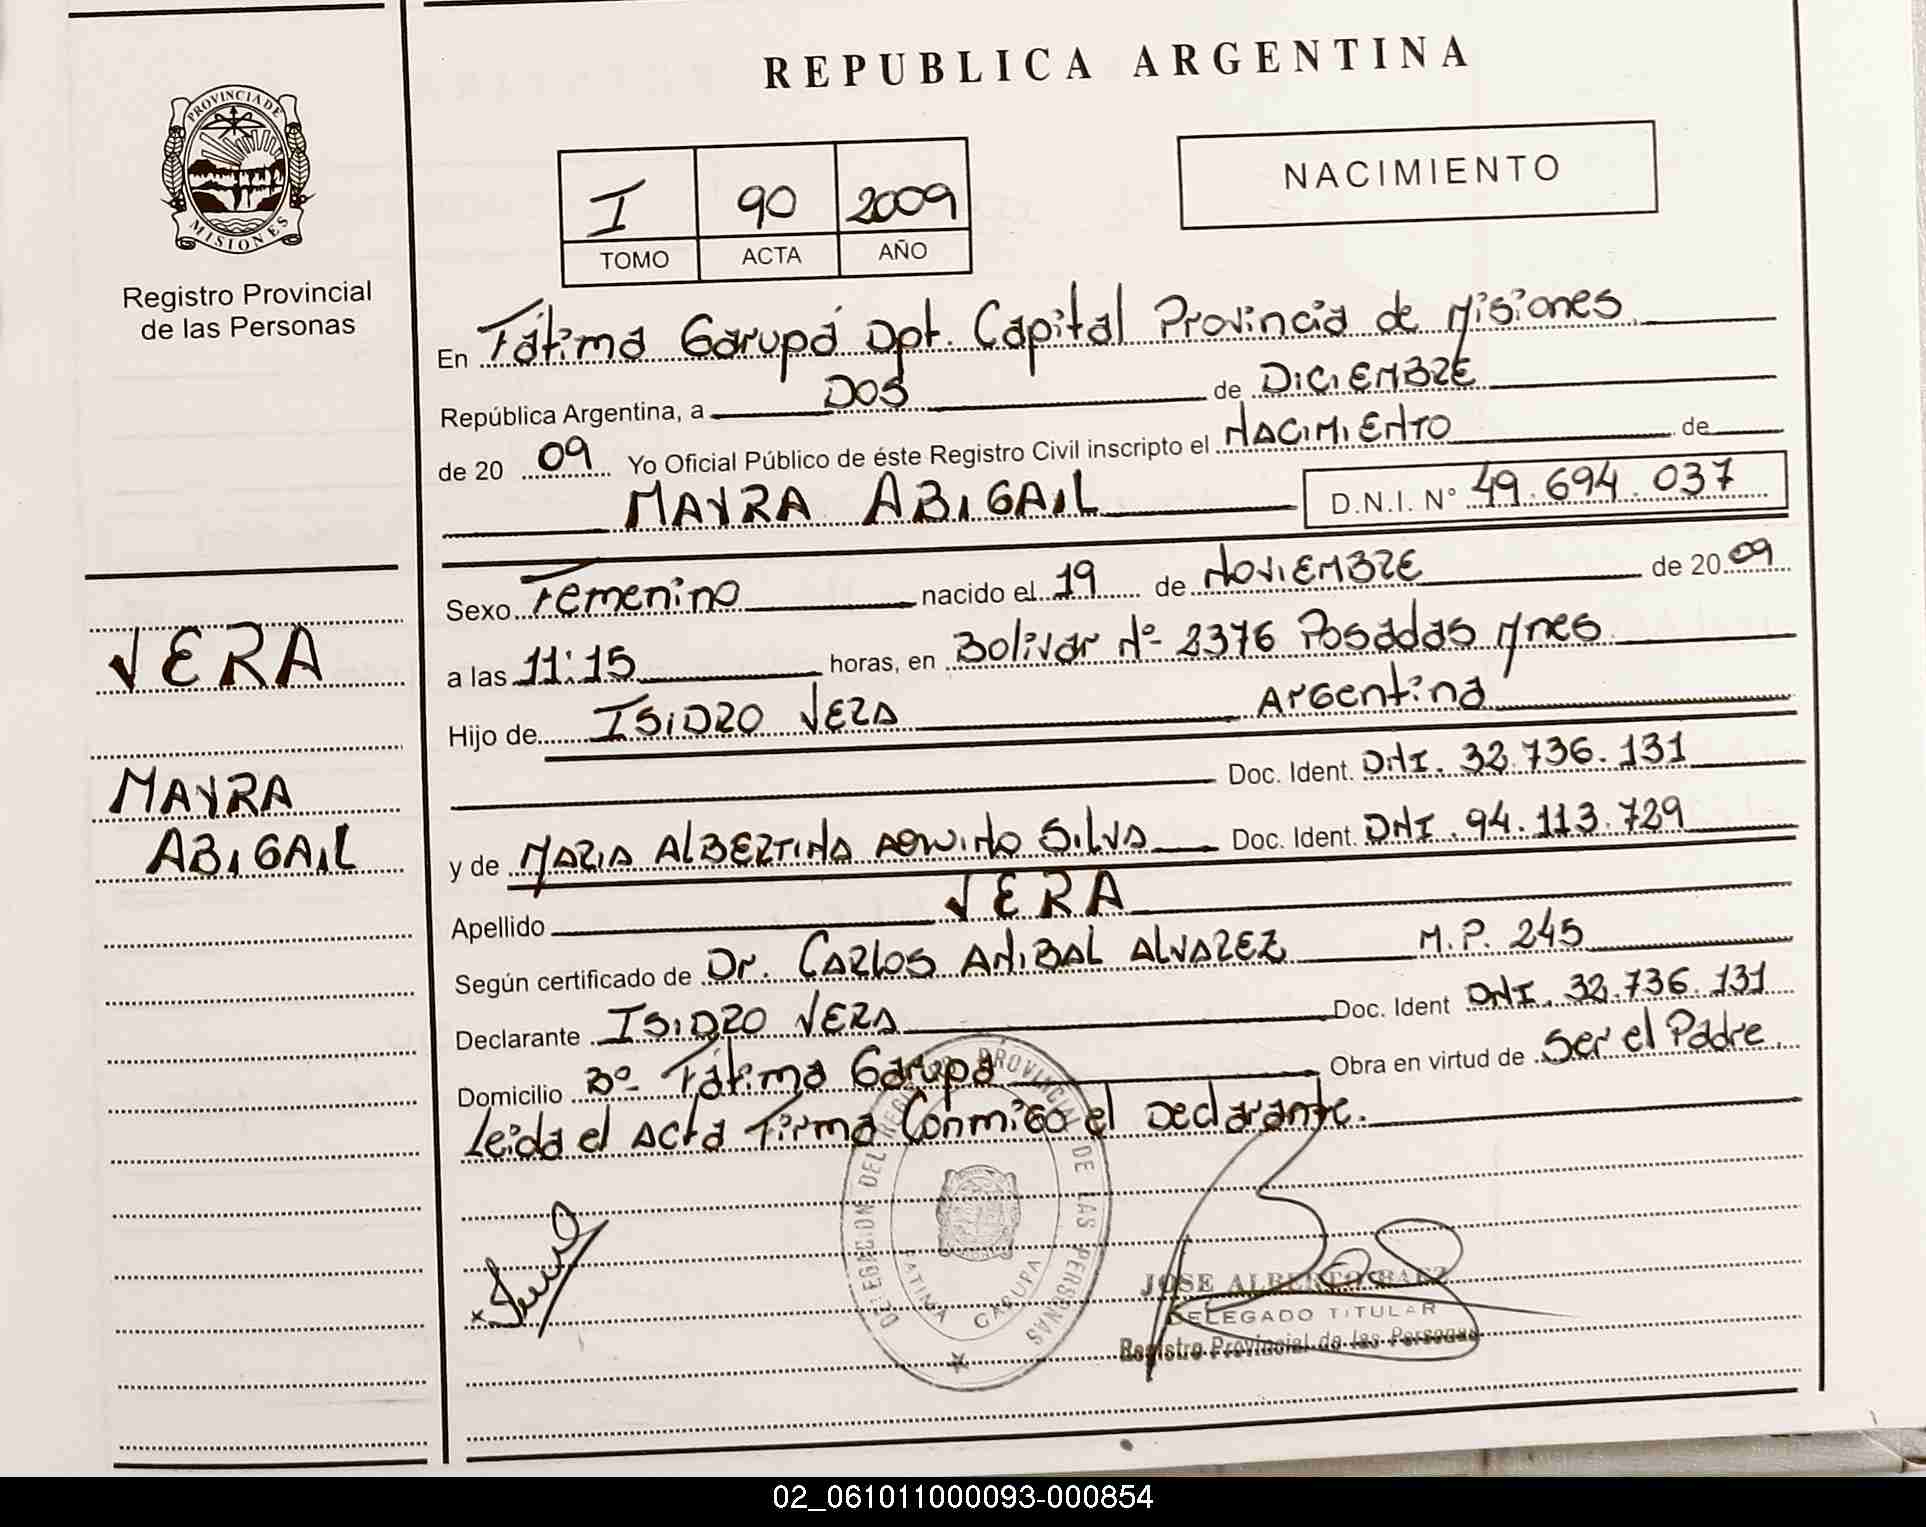 REPUBLICA ARGENTINA
PROVINCIA DE
MISIONES
Registro Provincial
de las Personas
I 90 2009
TOMO ACTA AÑO
NACIMIENTO
En Fátima Garupá Dpt. Capital Provincia de Misiones
República Argentina, a DOS de DICIEMBRE
de 20 09 Yo Oficial Público de éste Registro Civil inscripto el NACIMIENTO de
MAYRA ABIGAIL D.N.I. N° 49.694.037
Sexo Femenino nacido el 19 de NOVIEMBRE de 20 09
a las 11:15 horas, en Bolivar Nº 2376 Posadas Mnes
Hijo de ISIDRO VERA Argentina
Doc. Ident. DNI. 32.736.131
y de MARIA ALBERTINA Silva Doc. Ident. DNI. 94.113.729
Apellido VERA
Según certificado de Dr. CARLOS ANIBAL ALVAREZ M.P. 245
Declarante ISIDRO VERA Doc. Ident DNI. 32.736.131
Domicilio Bº Fátima Garupa Obra en virtud de Ser el Padre
Leida el Acta Firma Conmigo el Declarante.
VERA
MAYRA
ABIGAIL
DELEGACION DEL REGISTRO PROVINCIAL DE LAS PERSONAS
FATIMA GARUPA
JOSE ALBERTO BAEZ
DELEGADO TITULAR
Registro Provincial de las Personas
02_061011000093-000854